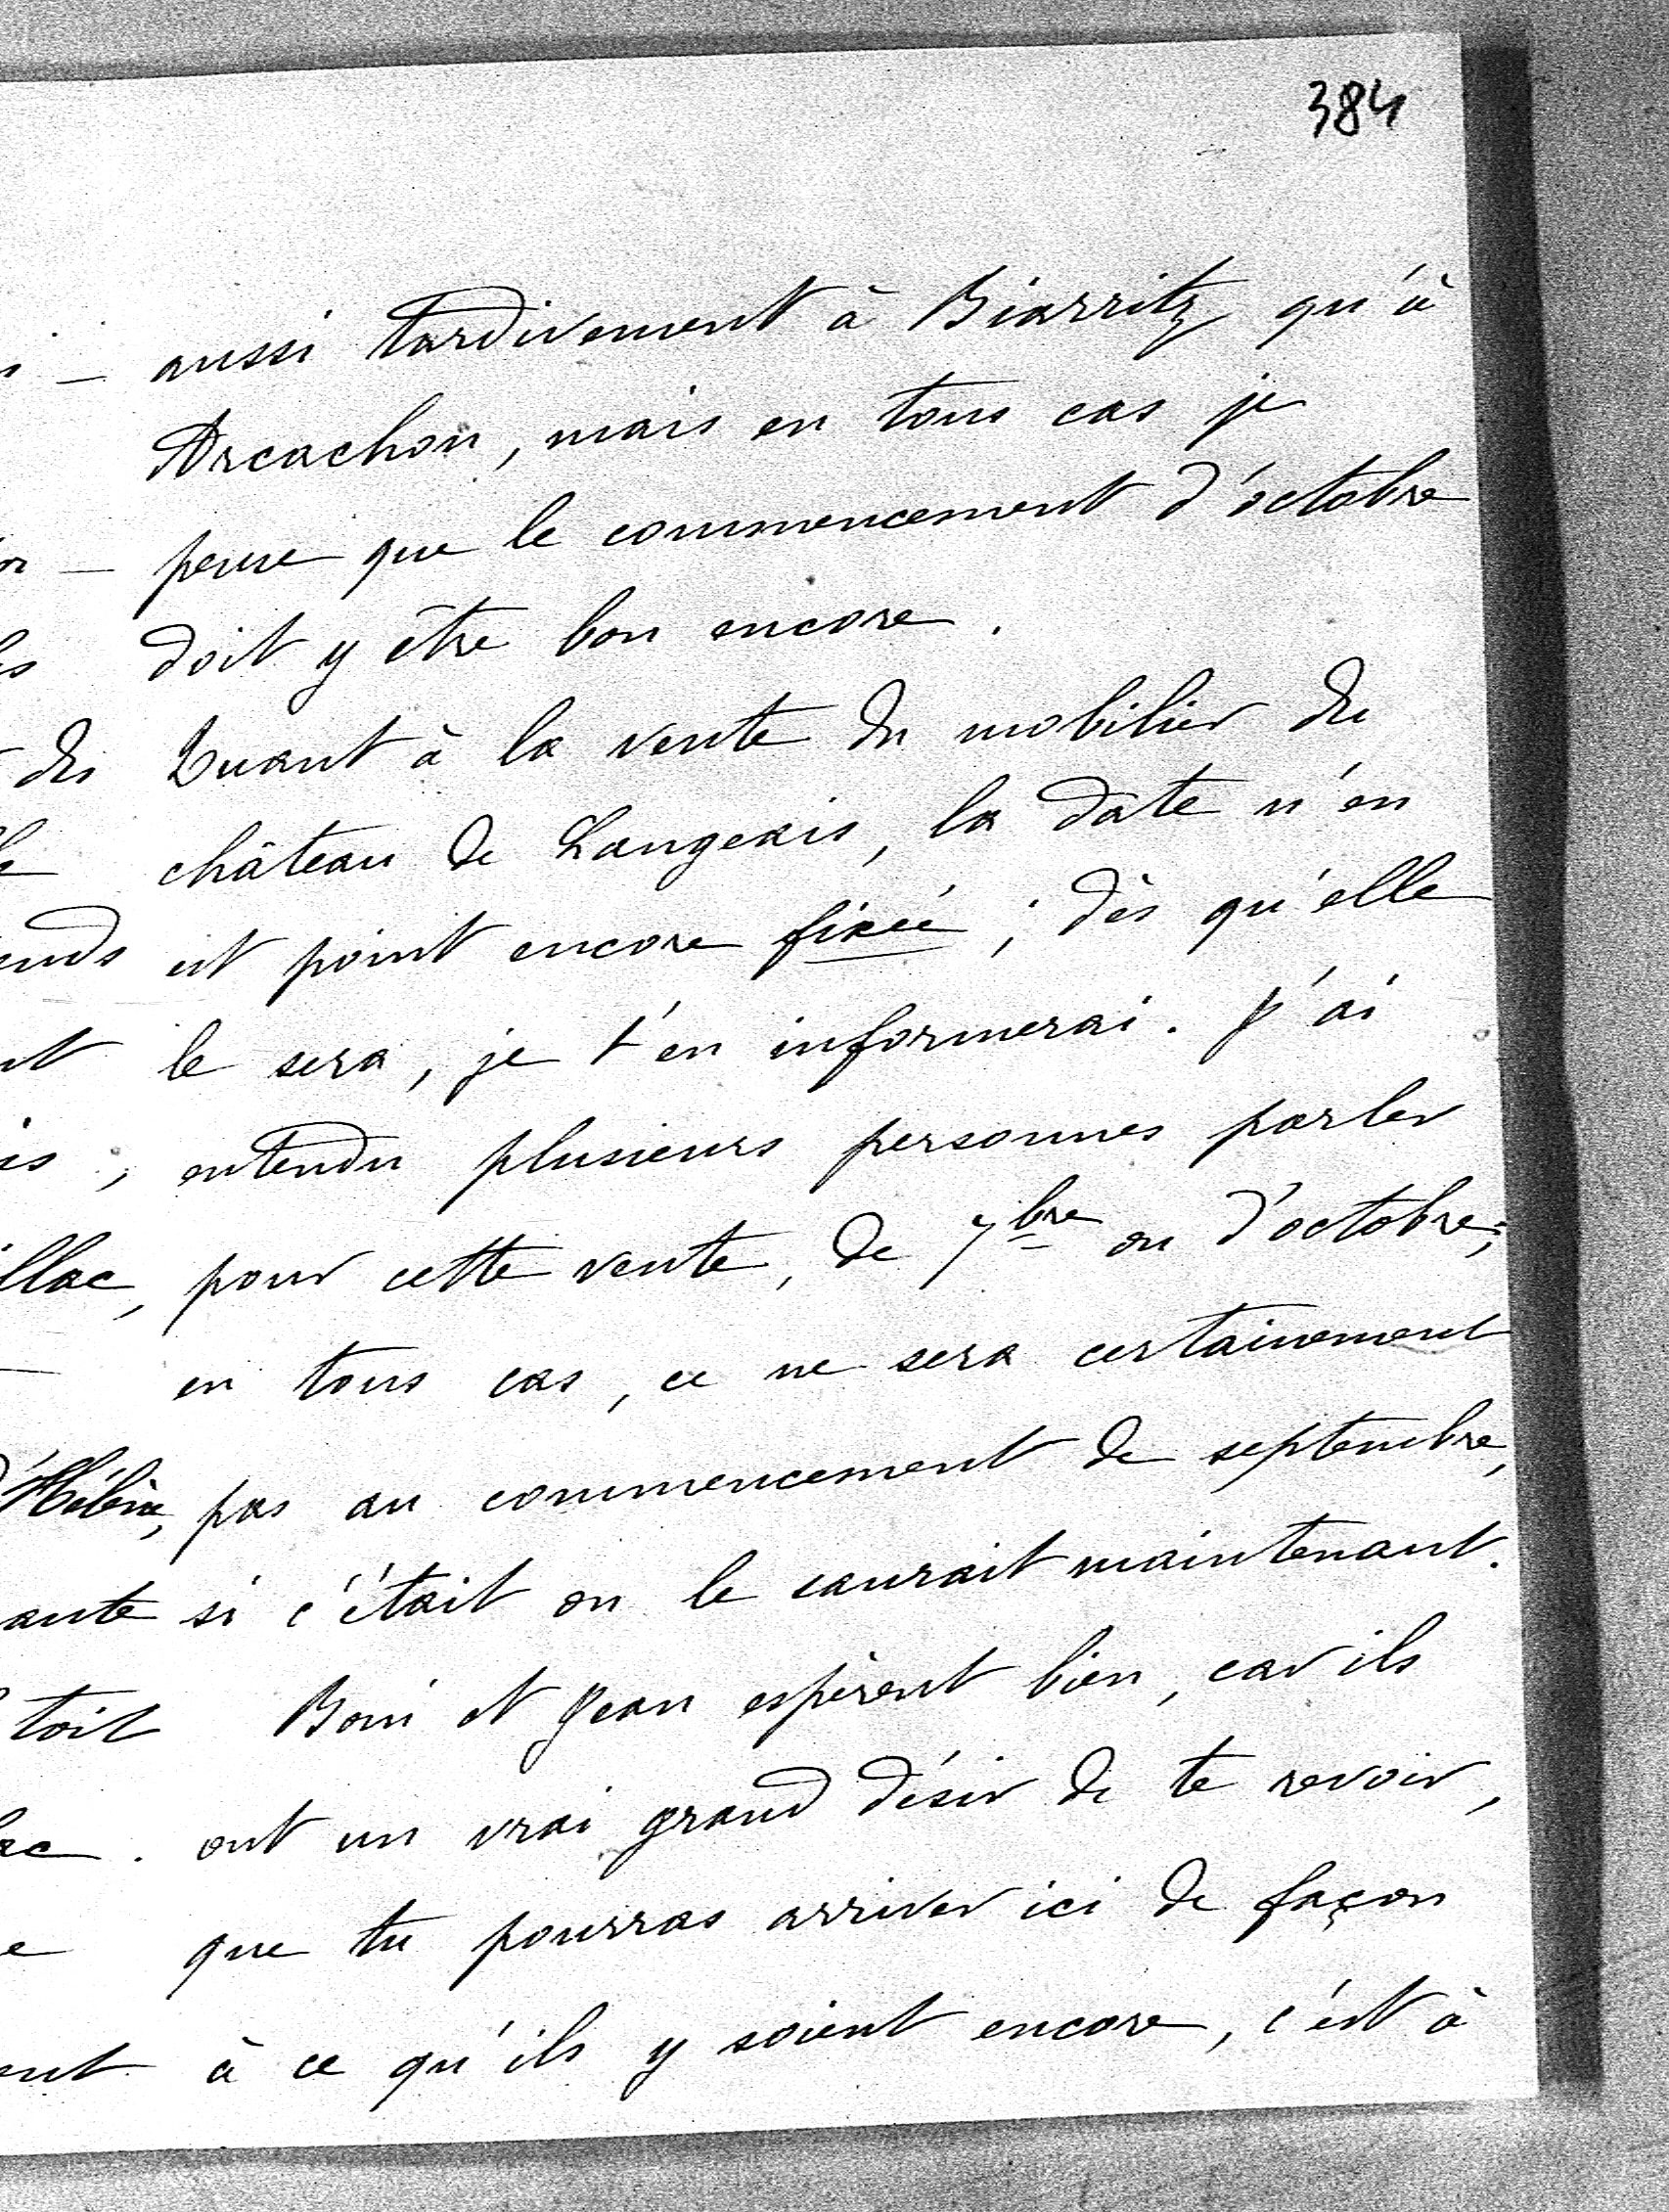 384
aussi tardivement à Biarritz qu'à
Arcachon, mais en tous cas je
pense que le commencement d'octobre
doit y être bon encore.
Quant à la vente du mobilier du
château de Langeais, la date n'en
est point encore fixée ; dès qu'elle
le sera, je t'en informerai. J'ai
entendu plusieurs personnes parler
pour cette vente, de 7bre ou d'octobre;
en tous cas, ce ne sera certainement
pas au commencement de septembre,
si c'était on le saurait maintenant.
Boni et Jean espèrent bien, car ils
ont un vrai grand désir de te revoir,
que tu pourras arriver ici de façon
à ce qu'ils y soient encore, c'est à